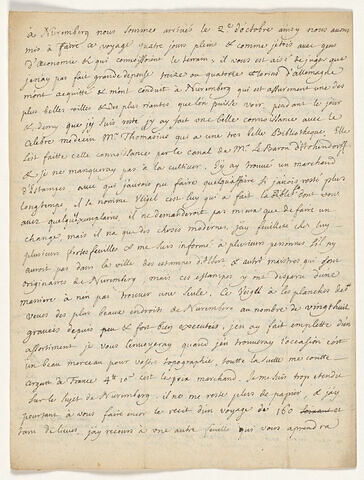 à Nuremberg nous sommes arrivés le 2e d'octobre ainsy nous avons
mis à faire ce voyage quatre jours pleins & comme j'étois avec gens
d'oeconomie & qui connoissoient le terrain, il vous est aisé de juger que
je n'ay pas fait grande depense treize ou quatorze florins d'allemagne
m'ont acquitté & m'ont conduit à Nuremberg qui est assurement une des
plus belles villes & des plus riantes que l'on puisse voir, pendant le jour
& demy que j'y suis resté j'y ay fait une belle connoissance avec le
celebre medecin Mr. Thomasius qui a une tres belle Bibliotheque. Elle
s'est faitte cette connoissance par le canal de Mr. Le Baron
& je ne manqueray pas à la cultiver. J'y ay trouvé un marchand
d'estampes avec qui j'aurois pu faire quelqu'affaire si j'avois resté plus
longtemps. il se nomme Veigel est luy qui a fait la dont vous
avez quelqu'exemplaires, il ne demanderoit pas mieux que de faire un
change, mais il n'a que des choses modernes, j'ay feuilleté chez luy
plusieurs portefeuilles & me suis informé à plusieurs personnes s'il n'y
auroit pas dans la ville des estampes d'Albert & autre maistres qui sont
originaires de Nuremberg, mais ces estampes y ont disparu d'une
maniere à n'en pas trouver une seule. Ce Veigel a les planches des
veues des plus beaux endroits de Nuremberg au nombre de vingt huit
gravées depuis peu & fort bien executées, j'en ay fait emplette d'un
assortiment je vous l'envoyeray quand j'en trouveray l'occasion c'est
un beau morceau pour vostre topographie, toutte la suitte me coutte
argent de France 4# 10s c'est le prix marchand. Je me suis trop etendu
sur le sujet de Nuremberg, il ne me reste plus de papier, & j'ay
pourtant à vous faire encor le recit d'un voyage de 160 et
tant de lieues, j'ay recours à une autre feuille qui vous apprendra